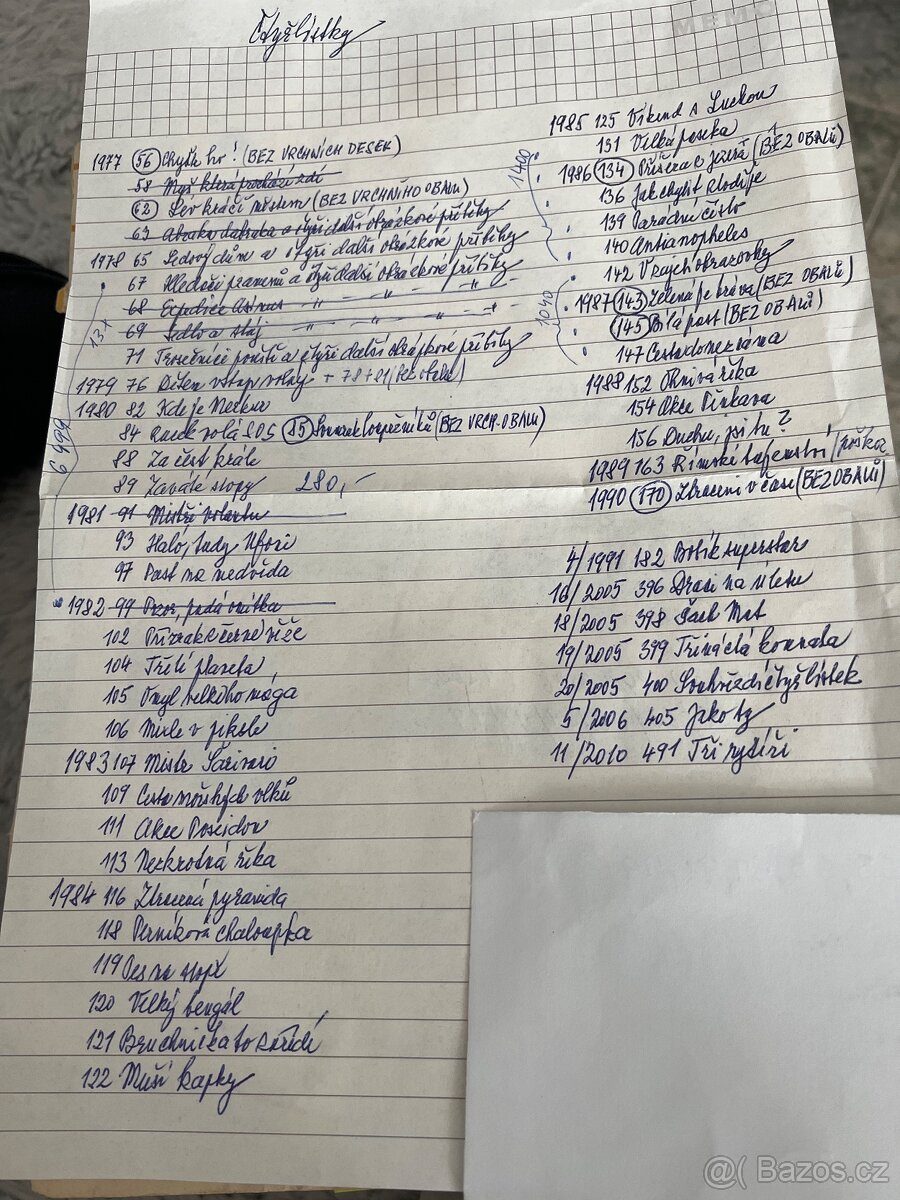 Čtyřlístky
MEMO
1977 56 Chyťte ho! (BEZ VRCHNÍCH DESEK)
58 Myš která prochází zdí
62 Lev kráčí městem (BEZ VRCHNÍHO OBALU)
63 Abraka dabraka a čtyři další obrázkové příběhy
1978 65 Ledový dům a čtyři další obrázkové příběhy
67 Hledači pramenů a čtyři další obrázkové příběhy
68 Expedice Asinus - " - " - " -
69 Sedlo a stáj - " - " - " -
71 Trosečníci pouště a čtyři další obrázkové příběhy
1979 76 Dětem vstup volný + 78 + 81 (bez obalu)
1980 82 Kde je Neckar
84 Racek volá SOS 85 Soumrak loupežníků (BEZ VRCH. OBALU)
88 Za čest krále
89 Zaváté stopy 280,-
1981 91 Mistři volantu
93 Haló, tady Ufoni
97 Past na medvěda
1982 99 Pozor, padá
102 Přízrak černé věže
104 Třetí planeta
105 Omyl velkého mága
106 Misie v pekle
1983 107 Mistr Šarivari
109 Cesta mořských vlků
111 Akce Poseidon
113 Nezkrotná řeka
1984 116 Ztracená pyramida
118 Perníková chaloupka
119 Pes na stopě
120 Velký bengál
121 Bzuchnička to zařídí
122 Muší kapky
13x
6 499
1985 125 Víkend s Luckou
131 Velká paseka
1986 134 Příšera z jezera (BEZ OBALŮ)
136 Jak chytit zloděje
139 Parádní číslo
140 Antianopheles
142 V zajetí obrazovky
1987 143 Zelená je tráva (BEZ OBALŮ)
145 Bílá past (BEZ OBALŮ)
147 Cesta do neznáma
1988 152 Ohnivá řeka
154 Akce Pinkava
156 Duchu, jsi tu?
1989 163 Římské tajemství /poškoz
1990 170 Ztraceni v čase (BEZ OBALŮ)
1400
1040
4/1991 182 Bobík superstar
16/2005 396 Draci na úletu
18/2005 398 Šach Mat
19/2005 399 Třináctá komnata
20/2005 400 Souhvězdí čtyřlístek
5/2006 405 Jako ty
11/2010 491 Tři rytíři
@( Bazos.cz